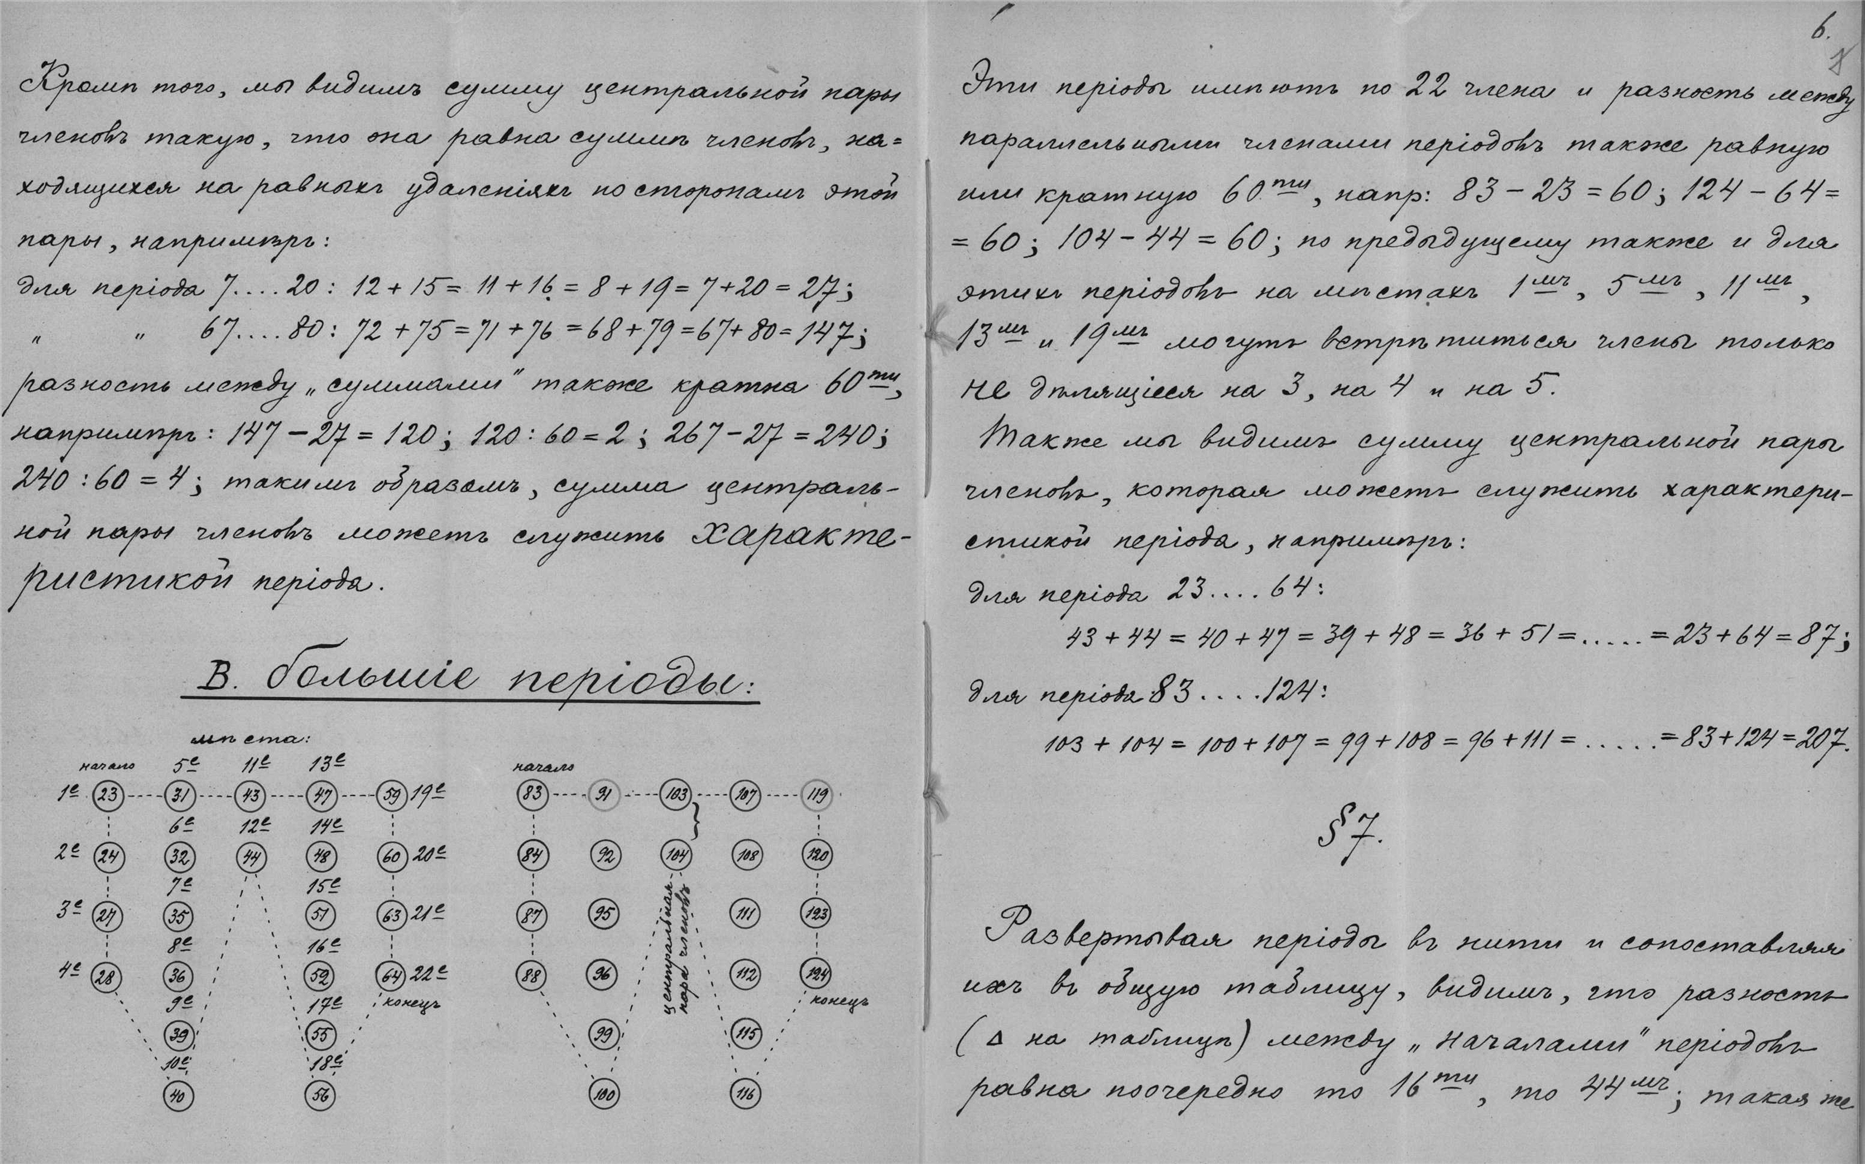 Кромѣ того, мы видимъ сумму центральной пары
членовъ такую, что она равна суммѣ членовъ, на=
ходящихся на равныхъ удаленіяхъ по сторонамъ этой
пары, напримѣръ:
для періода 7....20: 12+15 = 11+16 = 8+19 = 7+20 = 27;
„ „ 67....80: 72+75 = 71+76 = 68+79 = 67+80 = 147;
разность между „суммами“ также кратна 60ти,
напримѣръ: 147-27 = 120; 120:60 = 2; 267-27 = 240;
240:60 = 4; такимъ образомъ, сумма централь-
ной пары членовъ можетъ служить характе-
ристикой періода.
В. большіе періоды:
мѣста:
начало 5е 11е 13е
1е 23 31 43 47 59 19е
6е 12е 14е
2е 24 32 44 48 60 20е
7е 15е
3е 27 35 51 63 21е
8е 16е
4е 28 36 52 64 22е
9е 17е конецъ
39 55
10е 18е
40 56
начало
83 91 103 107 119
84 92 104 108 120
87 95 111 123
88 96 112 124
центральная
пара членовъ
конецъ
99 115
100 116
6.
Эти періоды имѣютъ по 22 члена и разность между
параллельными членами періодовъ также равную
или кратную 60ти, напр: 83-23 = 60; 124-64 =
= 60; 104-44 = 60; по предыдущему также и для
этихъ періодовъ на мѣстахъ 1мъ, 5мъ, 11мъ,
13мъ и 19мъ могутъ встрѣтиться члены только
не дѣлящіеся на 3, на 4 и на 5.
Также мы видимъ сумму центральной пары
членовъ, которая можетъ служить характери-
стикой періода, напримѣръ:
для періода 23....64:
43+44 = 40+47 = 39+48 = 36+51 = ..... = 23+64 = 87;
для періода 83....124:
103+104 = 100+107 = 99+108 = 96+111 = ..... = 83+124 = 207.
§ 7.
Развертывая періоды въ нити и сопоставляя
ихъ въ общую таблицу, видимъ, что разность
(Δ на таблицѣ) между „началами“ періодовъ
равна поочередно то 16ти, то 44мъ; такая же